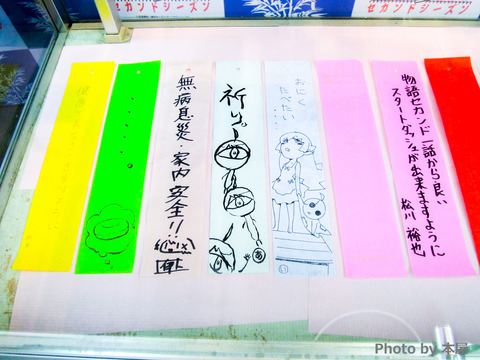 セカンドシーズン
セカンドシーズン
物語セカンド一話から良い
スタートダッシュが出来ますように
松川裕也
おにく
たべたい…
祈りっー
あ
無病息災・家内安全!!
Photo by 本屋